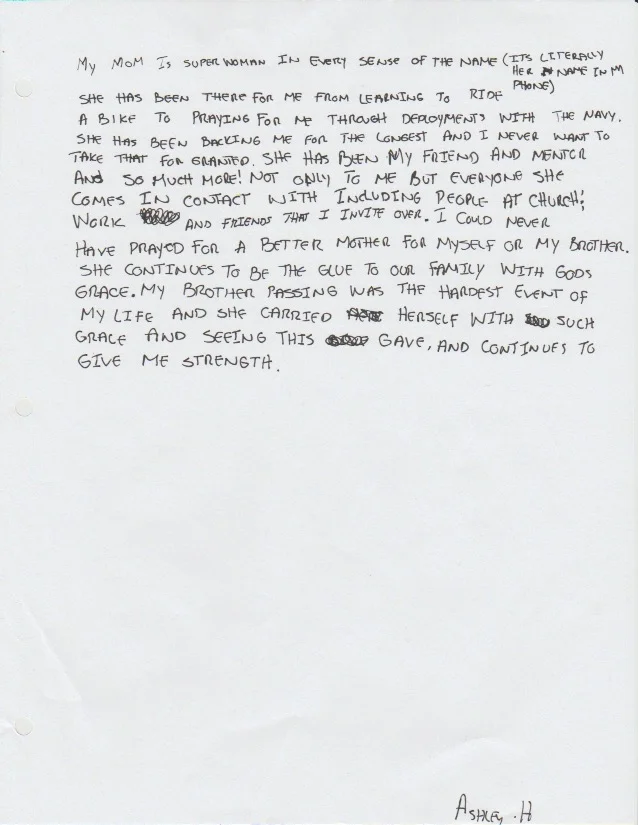 My MOM IS SUPERWOMAN IN EVERY SENSE OF THE NAME (ITS LITERALLY
HER NAME IN MY
PHONE)
SHE HAS BEEN THERE FOR ME FROM LEARNING TO RIDE
A BIKE TO PRAYING FOR ME THROUGH DEPLOYMENTS WITH THE NAVY.
SHE HAS BEEN BACKING ME FOR THE LONGEST AND I NEVER WANT TO
TAKE THAT FOR GRANTED. SHE HAS BEEN MY FRIEND AND MENTOR
AND SO MUCH MORE! NOT ONLY TO ME BUT EVERYONE SHE
COMES IN CONTACT WITH INCLUDING PEOPLE AT CHURCH,
WORK AND FRIENDS THAT I INVITE OVER. I COULD NEVER
HAVE PRAYED FOR A BETTER MOTHER FOR MYSELF OR MY BROTHER.
SHE CONTINUES TO BE THE GLUE TO OUR FAMILY WITH GODS
GRACE. MY BROTHER PASSING WAS THE HARDEST EVENT OF
MY LIFE AND SHE CARRIED HERSELF WITH SUCH
GRACE AND SEEING THIS GAVE, AND CONTINUES TO
GIVE ME STRENGTH.
ASHLEY.H